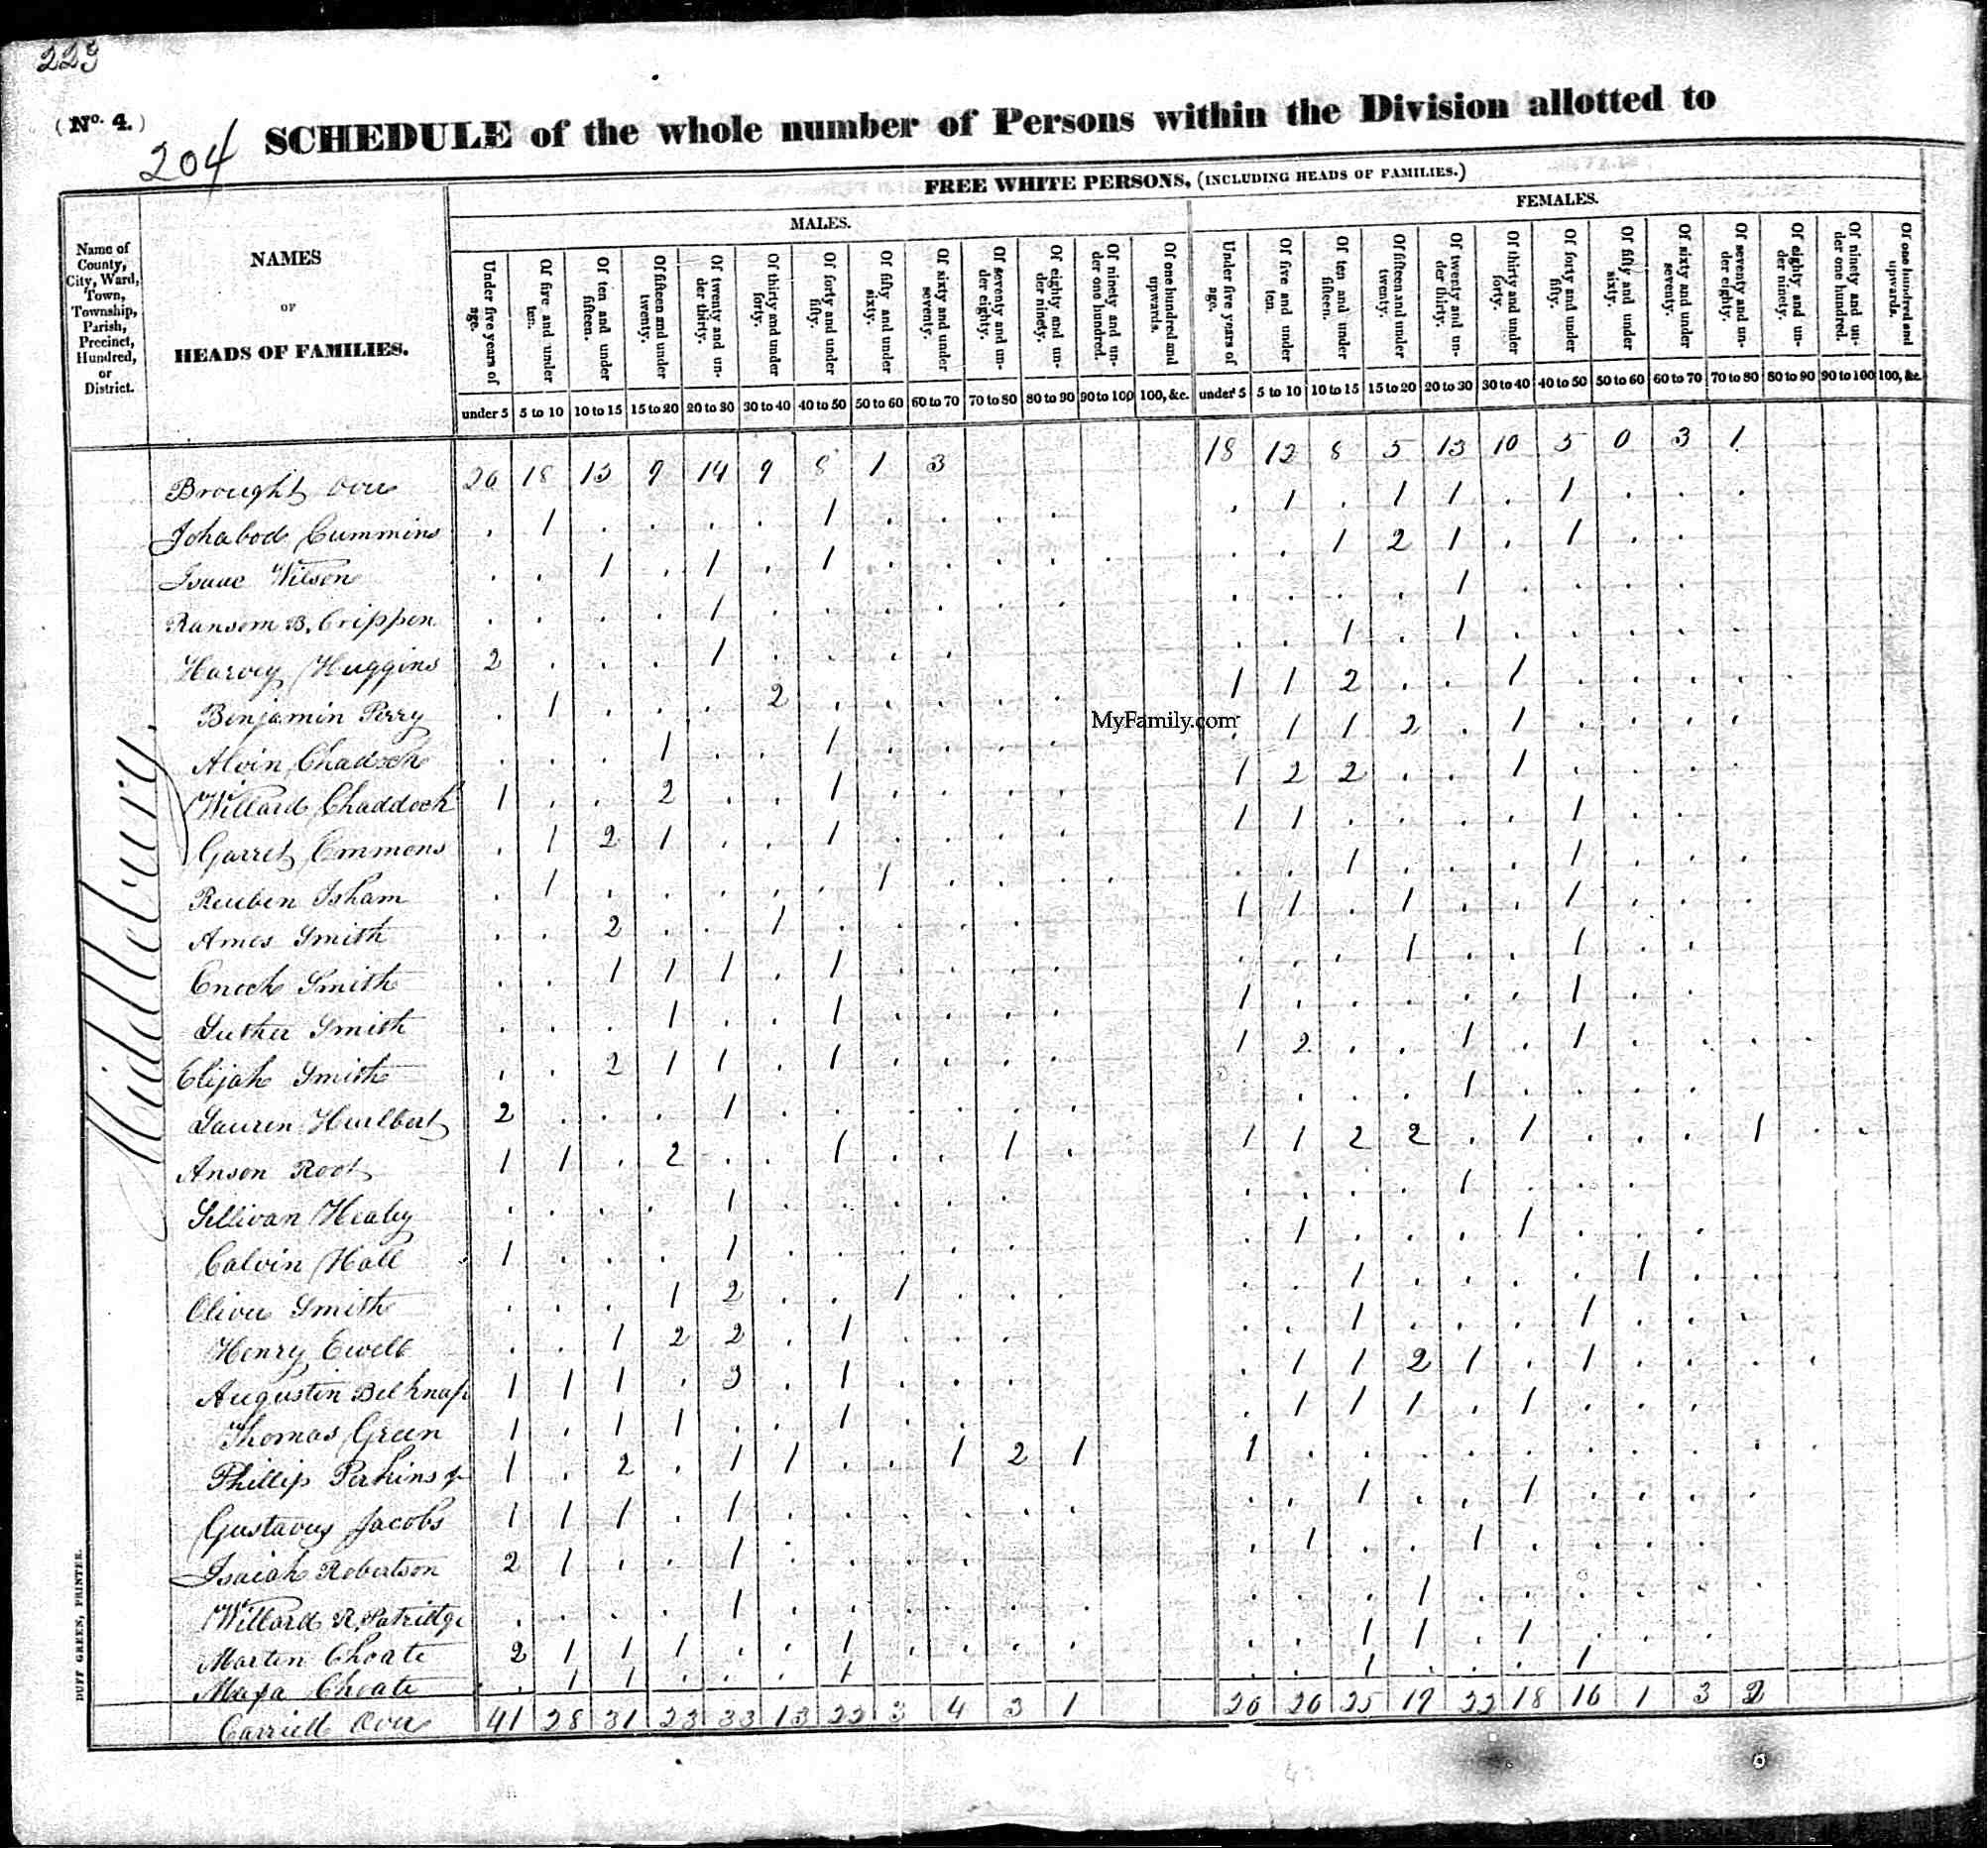 223
(No. 4.)
204
SCHEDULE of the whole number of Persons within the Division allotted to
FREE WHITE PERSONS, (INCLUDING HEADS OF FAMILIES.)
MALES. FEMALES.
Name of County, City, Ward, Town, Township, Parish, Precinct, Hundred, or District.
NAMES
OF
HEADS OF FAMILIES.
Under five years of age. Of five and under ten. Of ten and under fifteen. Of fifteen and under twenty. Of twenty and under thirty. Of thirty and under forty. Of forty and under fifty. Of fifty and under sixty. Of sixty and under seventy. Of seventy and under eighty. Of eighty and under ninety. Of ninety and under one hundred. Of one hundred and upwards. Under five years of age. Of five and under ten. Of ten and under fifteen. Of fifteen and under twenty. Of twenty and under thirty. Of thirty and under forty. Of forty and under fifty. Of fifty and under sixty. Of sixty and under seventy. Of seventy and under eighty. Of eighty and under ninety. Of ninety and under one hundred. Of one hundred and upwards.
under 5 5 to 10 10 to 15 15 to 20 20 to 30 30 to 40 40 to 50 50 to 60 60 to 70 70 to 80 80 to 90 90 to 100 100, &c. under 5 5 to 10 10 to 15 15 to 20 20 to 30 30 to 40 40 to 50 50 to 60 60 to 70 70 to 80 80 to 90 90 to 100 100, &c.
Middlebury
Brought Over 26 18 13 9 14 9 8 1 3 18 12 8 5 13 10 5 0 3 1
Ichabod Cummins 1 1 1 1 1 1
Isaac Wilson 1 1 1 1 2 1 1
Ransom B. Crippen 1 1
Harvey Huggins 2 1 1 1
Benjamin Perry 1 2 1 1 2 1
Alvin Chaddock 1 1 1 1 2 1
Willard Chaddock 1 2 1 1 2 2 1
Garret Emmons 1 2 1 1 1 1 1
Reuben Isham 1 1 1 1
Amos Smith 2 1 1 1 1 1
Enoch Smith 1 1 1 1 1 1
Luther Smith 1 1 1 1
Elijah Smith 2 1 1 1 1 2 1 1
Lauren Hurlbert 2 1 1
Anson Root 1 1 2 1 1 1 1 2 2 1 1
Sillivan Healey 1 1
Calvin Hall 1 1 1 1
Oliver Smith 1 2 1 1 1
Henry Ewell 1 2 2 1 1 1
Augustin Belknap 1 1 1 3 1 1 1 2 1 1
Thomas Green 1 1 1 1 1 1 1 1
Phillip Perkins Jr 1 2 1 1 1 2 1 1
Gustavus Jacobs 1 1 1 1 1 1
Isaiah Robertson 2 1 1 1 1
Willard R. Patridge 1 1
Martin Choate 2 1 1 1 1 1 1 1
Choate 1 1 1 1 1
Carried Over 41 28 31 23 33 13 22 3 4 3 1 26 26 25 19 22 18 16 1 3 2
MyFamily.com
DUFF GREEN, PRINTER.